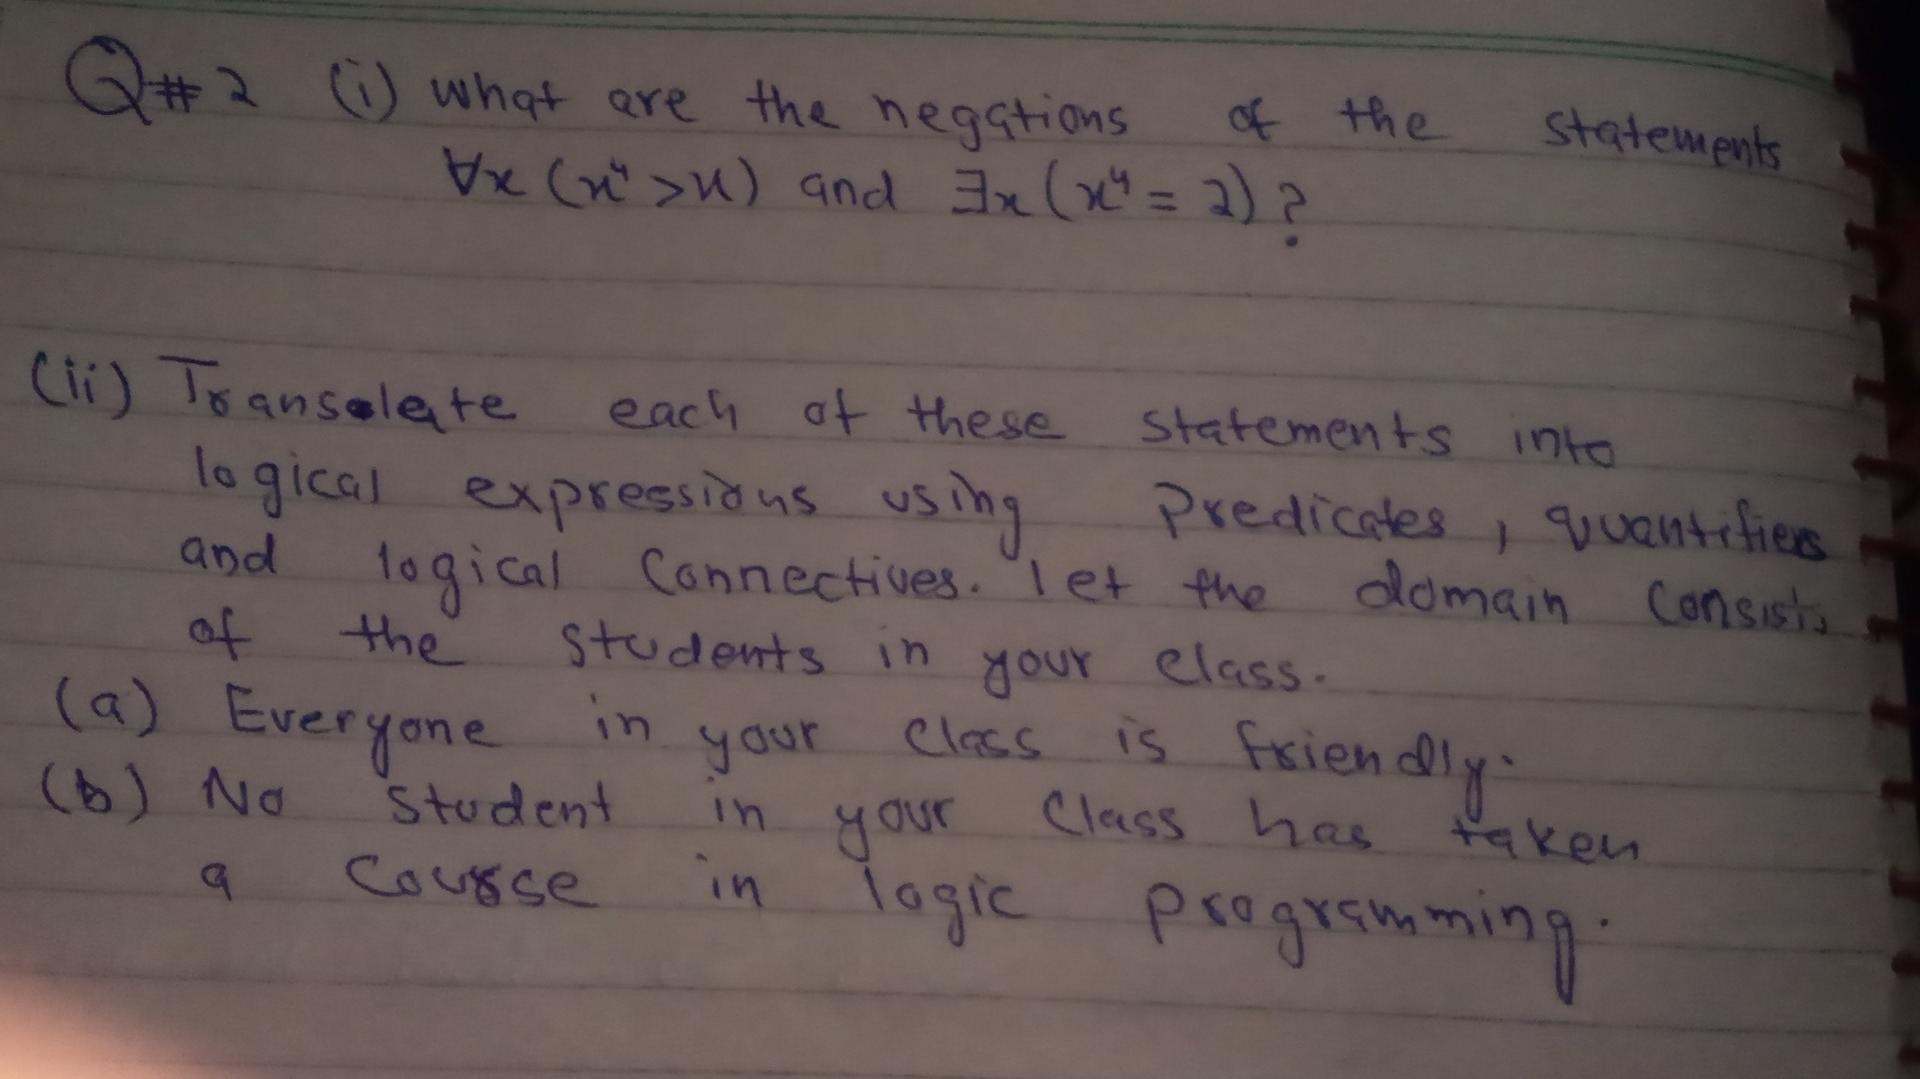 Q#2 (i) what are the negations of the statements
∀x (x⁴ > x) and ∃x (x⁴ = 2) ?
(ii) Translate each of these statements into
logical expressions using Predicates, quantifiers
and logical Connectives. let the domain Consists
of the students in your class.
(a) Everyone in your class is friendly.
(b) No student in your Class has taken
a Course in logic programming.